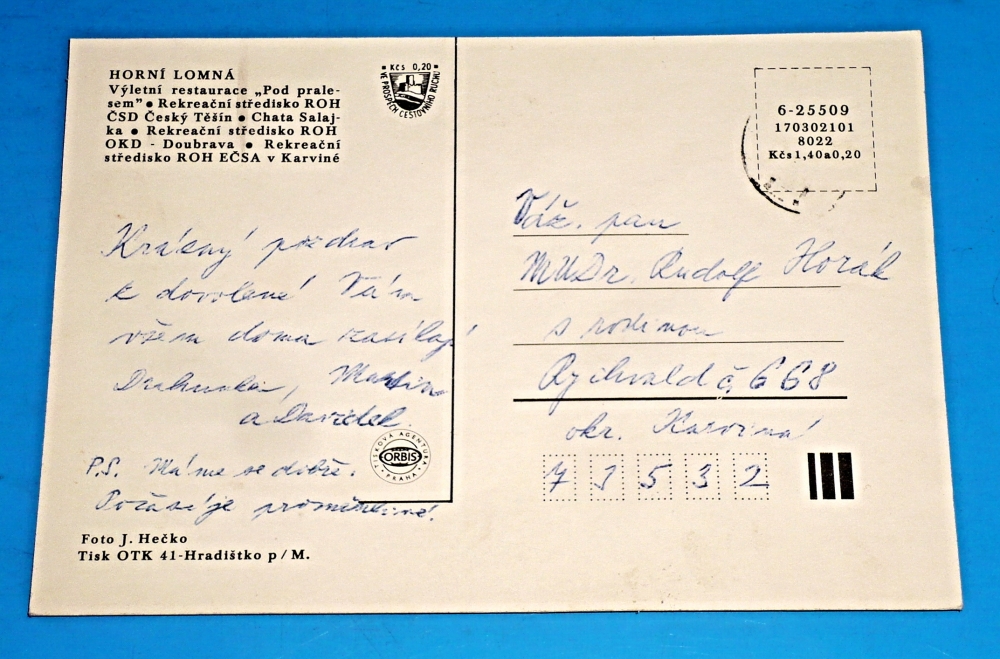 HORNÍ LOMNÁ
Výletní restaurace „Pod prale-
sem" ● Rekreační středisko ROH
ČSD Český Těšín ● Chata Salaj-
ka ● Rekreační středisko ROH
OKD - Doubrava ● Rekreační
středisko ROH EČSA v Karviné
Kčs 0,20
VE PROSPĚCH CESTOVNÍHO RUCHU
Krásný pozdrav
z dovolené Vám
všem doma zasílají
Drahunka, Martin
a Davídek.
P.S. Máme se dobře.
Počasí je proměnlivé.
TISKOVÁ AGENTURA
ORBIS
PRAHA
Foto J. Hečko
Tisk OTK 41-Hradištko p/M.
6-25509
170302101
8022
Kčs 1,40a0,20
Váž. pan
MUDr. Rudolf Horák
s rodinou
Rychvald č. 668
okr. Karviná
73532